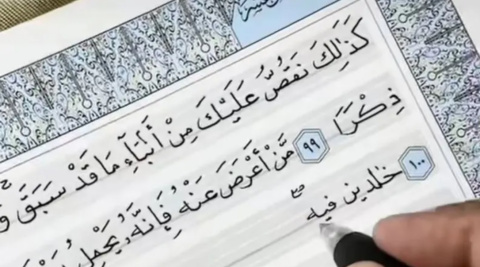 كَذَٰلِكَ نَقُصُّ عَلَيْكَ مِنْ أَنۢبَآءِ مَا قَدْ سَبَقَ
ذِكْرًا ٩٩ مَّنْ أَعْرَضَ عَنْهُ فَإِنَّهُۥ يَحْمِلُ
١٠٠ خَٰلِدِينَ فِيهِ ۖ